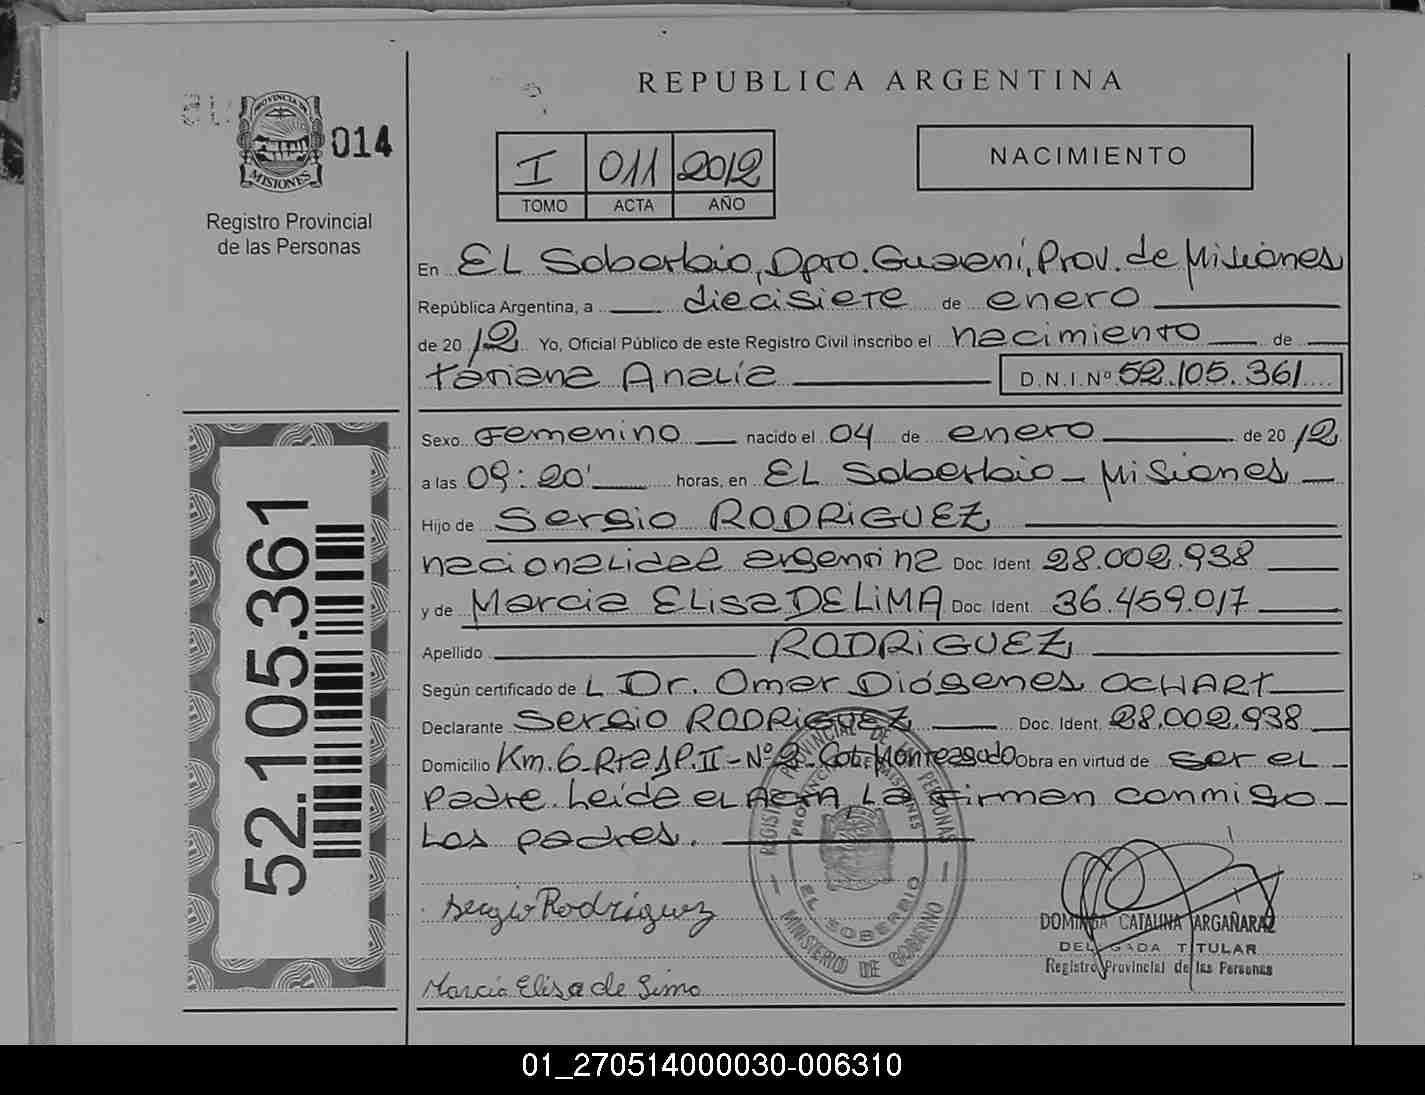 REPUBLICA ARGENTINA
PROVINCIA DE
MISIONES
014
Registro Provincial
de las Personas
I 011 2012
TOMO ACTA AÑO
NACIMIENTO
En EL Soberbio, Dpto. Guaraní, Prov. de Misiones
República Argentina, a diecisiete de enero
de 20 12 Yo, Oficial Público de este Registro Civil inscribo el nacimiento de
Tatiana Analía D.N.I.Nº 52.105.361
Sexo Femenino nacido el 04 de enero de 20 12
a las 09:20' horas, en EL Soberbio - Misiones -
Hijo de Sergio RODRIGUEZ
nacionalidad argentina Doc. Ident. 28.002.938
y de Marcia ELisa DE LiMA Doc. Ident. 36.459.017
Apellido RODRIGUEZ
Según certificado de L Dr. Omar Diógenes OCHART
Declarante Sergio RODRIGUEZ Doc. Ident. 28.002.938
Domicilio Km. 6 - Rta J.P. II - Nº 2 - Col. Monteagudo Obra en virtud de ser el -
padre. Leída el Acta, La firman conmigo -
Los padres.
52.105.361
REGISTRO PROVINCIAL DE LAS PERSONAS
PROVINCIA DE MISIONES
EL SOBERBIO
MINISTERIO DE GOBIERNO
Sergio Rodriguez
Marcia Elisa de Lima
DOMINGA CATALINA ARGAÑARAZ
DELEGADA TITULAR
Registro Provincial de las Personas
01_270514000030-006310